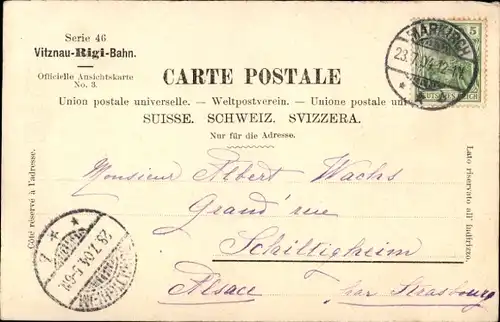 Serie 46
Vitznau-Rigi-Bahn.
Officielle Ansichtskarte
No. 3.
CARTE POSTALE
Union postale universelle. — Weltpostverein. — Unione postale uni
SUISSE. SCHWEIZ. SVIZZERA.
Nur für die Adresse.
Côté réservé à l'adresse.
Lato riservato all' indirizzo.
MARKIRCH
23.7.04.12-1N.
5
DEUTSCHES REICH
Monsieur Albert Wachs
Grand'rue
Schiltigheim
Alsace par Strasbourg
23.7.04.5-6N.